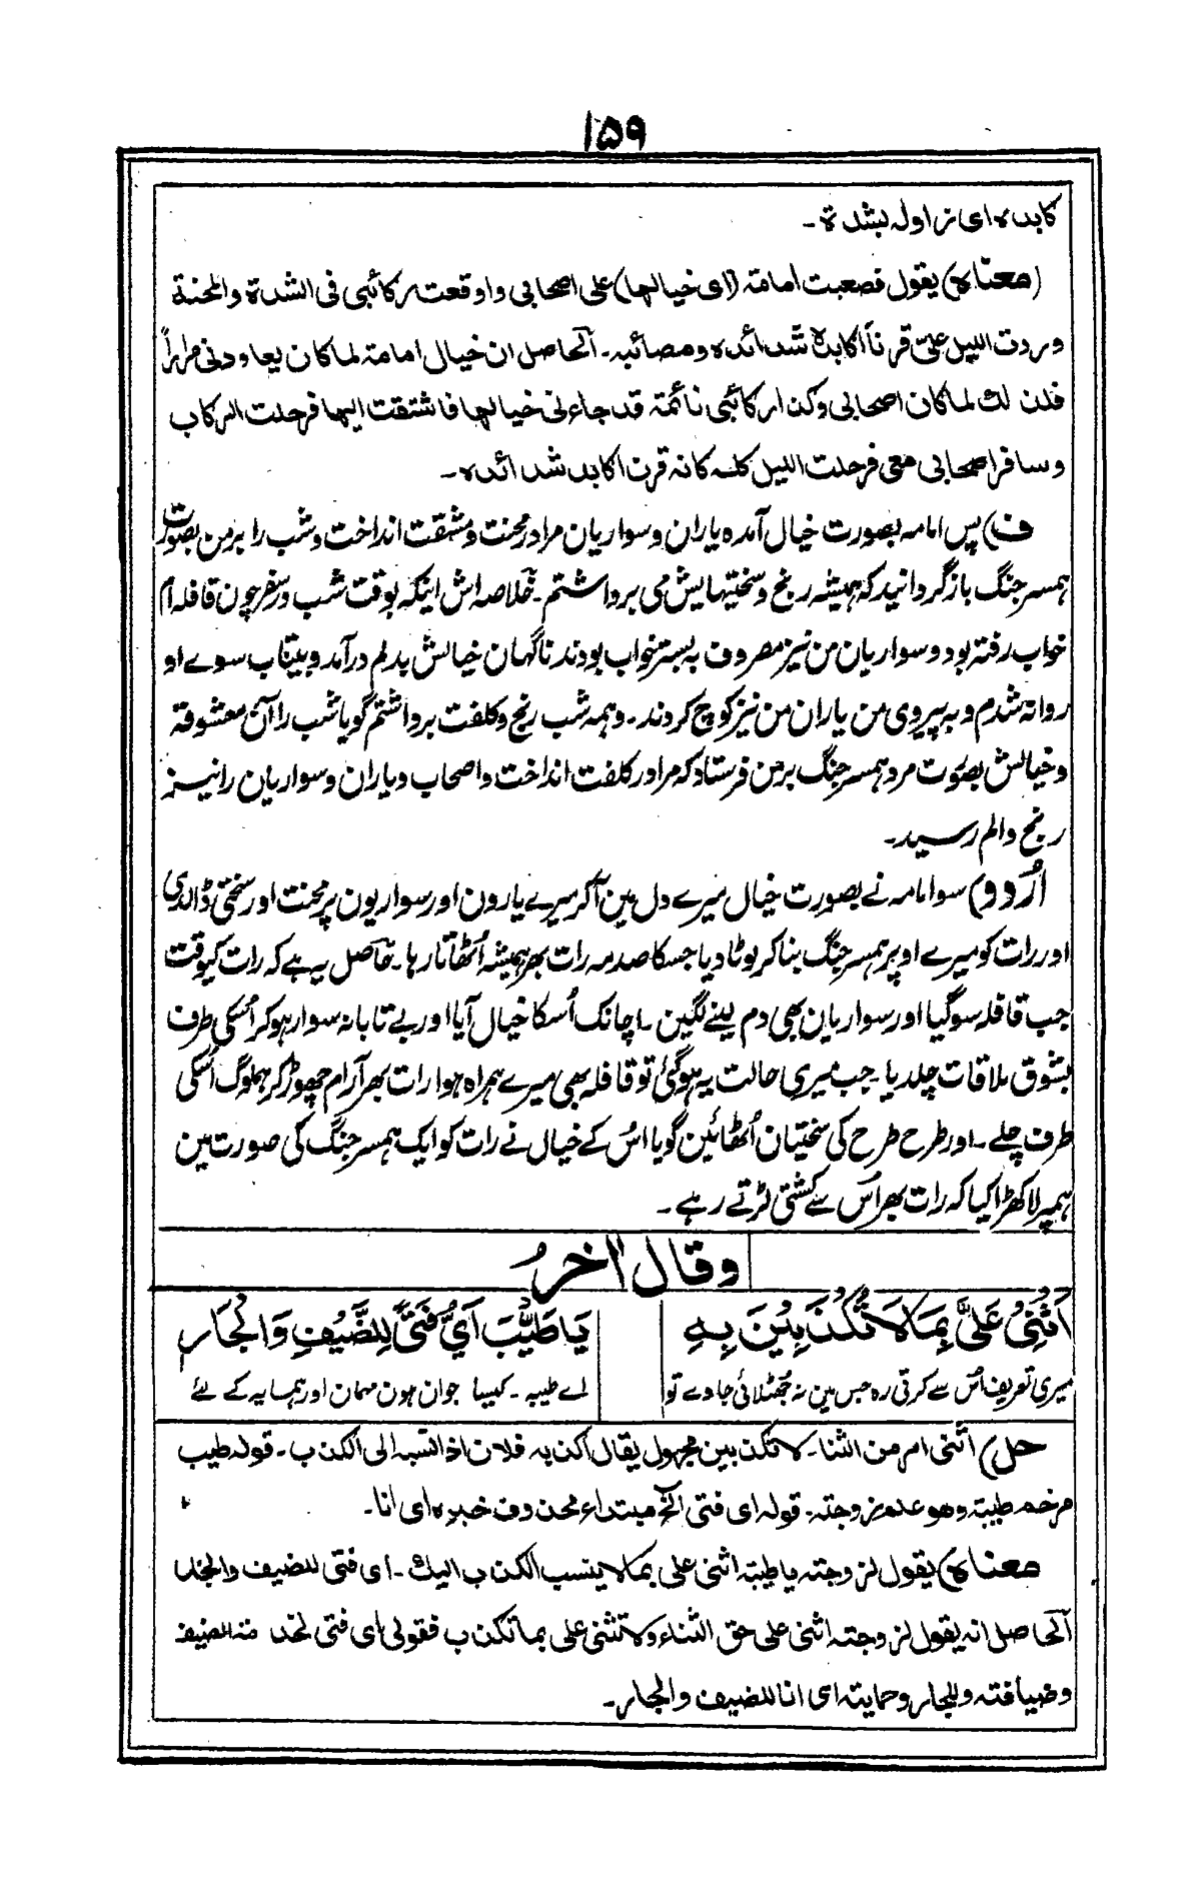 ۱۵۹
کابدہ ای زاولہ بشدۃ۔
(معناہ) یقول فصعبت امامۃ (ای خیالہا) علی اصحابی واوقعت رکائبی فی الشدۃ والمحنۃ
وردت اللیل علیّ قرناً اکابدہ شدائدہ ومصائبہ۔ الحاصل ان خیال امامۃ لما کان یعاودنی مراراً
فلذلک لما کان اصحابی وکذا رکائبی نائمۃ قد جاءنی خیالہا فاشتقت الیہا فرحلت الرکاب
وسافر اصحابی معی فرحلت اللیل کلہ کانہ قرن اکابد شدائدہ۔
ف) پس امامہ بصورت خیال آمدہ یاران و سواریان مرا در محنت و مشقت انداخت و شب را بر من بصورت
ہمسر جنگ باز گردانید کہ ہمیشہ رنج و سختیہایش می برداشتم۔ خلاصہ اش اینکہ بوقت شب در سفر چون قافلہ ام
خواب رفتہ بود و سواریان من نیز مصروف بہ بستر خواب بودند ناگہان خیالش بدلم درآمد و بیتاب سوے او
روانہ شدم و بہ پیروی من یاران من نیز کوچ کردند۔ وہمہ شب رنج و کلفت برداشتم گویا شب را آن معشوقۃ
و خیالش بصورت مرد ہمسر جنگ بر من فرستاد کہ مرا در کلفت انداخت و اصحاب و یاران و سواریان را نیز
رنج و الم رسید۔
اُردو) سو امامہ نے بصورت خیال میرے دل مین آکر میرے یارون اور سواریون پر محنت اور سختی ڈالدی
اور رات کو میرے اوپر ہمسر جنگ بنا کر لوٹا دیا جسکا صدمہ رات بھر ہمیشہ اُٹھاتا رہا۔ حاصل یہ ہے کہ رات کیوقت
جب قافلہ سوگیا اور سواریان بھی دم لینے لگین۔ اچانک اُسکا خیال آیا اور بے تابانہ سوار ہوکر اُسکی طرف
بشوق ملاقات چلدیا۔ جب میری حالت یہ ہوگئی تو قافلہ بھی میرے ہمراہ ہوا رات بھر آرام چھوڑ کر ہملوگ اُسکی
طرف چلے۔ اور طرح طرح کی سختیان اُٹھائین گویا اُس کے خیال نے رات کو ایک ہمسر جنگ کی صورت مین
ہمپر لا کھڑا کیا کہ رات بھر اُس سے کشتی لڑتے رہے۔
وقال آخرُ
اَثْنِیْ عَلَیَّ بِمَا لَا تُکْذَبِیْنَ بِہٖ یَا طَیِّبَ اَیُّ فَتًی لِلضَّیْفِ وَالْجَارِ
میری تعریف اُس سے کرتی رہ جس مین نہ جھٹلائی جاوے تو اے طیبہ۔ کیسا جوان ہون مہمان اور ہمسایہ کے لئے
حل) اثنی امر من الثنا۔ لا تکذبین مجہول یقال اکذبہ فلان اذا نسبہ الی الکذب۔ قولہ طیب
مرخم طیبۃ وھو علم زوجتہ۔ قولہ ای فتی الخ مبتداء محذوف خبرہ ای انا۔
معناہ) یقول لزوجتہ یا طیبۃ اثنی علی بما لا ینسب الکذب الیک۔ ای فتی للضیف والجار
الحاصل انہ یقول لزوجتہ اثنی علی حق الثناء ولا تثنی علی بما تکذب فقولی ای فتی لخدمۃ الضیف
وضیافتہ وللجار وحمایتہ ای انا للضیف والجار۔